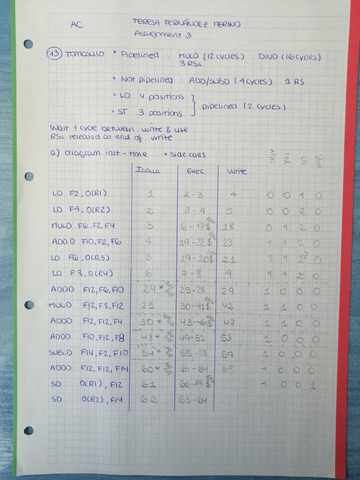 AC TERESA FERNÁNDEZ MERINO
Assignment 3
TOMASULO • Pipelined MULD (12 cycles) DIVD (16 cycles)
3 RSs
• Not pipelined ADD/SUBD (4 cycles) 1 RS
• LD 4 positions
• ST 3 positions
pipelined (2 cycles)
Wait 1 cycle between write & use
RSs released at end of write
a) diagram inst-time
Issue Exec Write
LD F2, 0(R1) 1 2-3 4 0 0 1 0
LD F4, 0(R2) 2 3-4 5 0 0 2 0
MULD F6, F2, F4 3 6-17 18 0 1 2 0
ADDD F10, F2, F6 4 19-22 23 1 1 2 0
LD F6, 0(R3) 5 19-20 21 1 1 2 0
LD F8, 0(R4) 6 7-8 9 1 1 2 0
ADDD F12, F6, F10 24 25-28 29 1 0 0 0
MULD F12, F8, F12 25 30-41 42 1 1 0 0
ADDD F12, F12, F4 30 43-46 47 1 1 0 0
ADDD F10, F12, F8 48 49-52 53 1 0 0 0
SUBD F14, F2, F10 54 55-58 59 1 0 0 0
ADDD F12, F12, F14 60 61-64 65 1 0 0 0
SD 0(R1), F12 61 1 0 0 1
SD 0(R2), F4 62 63-64